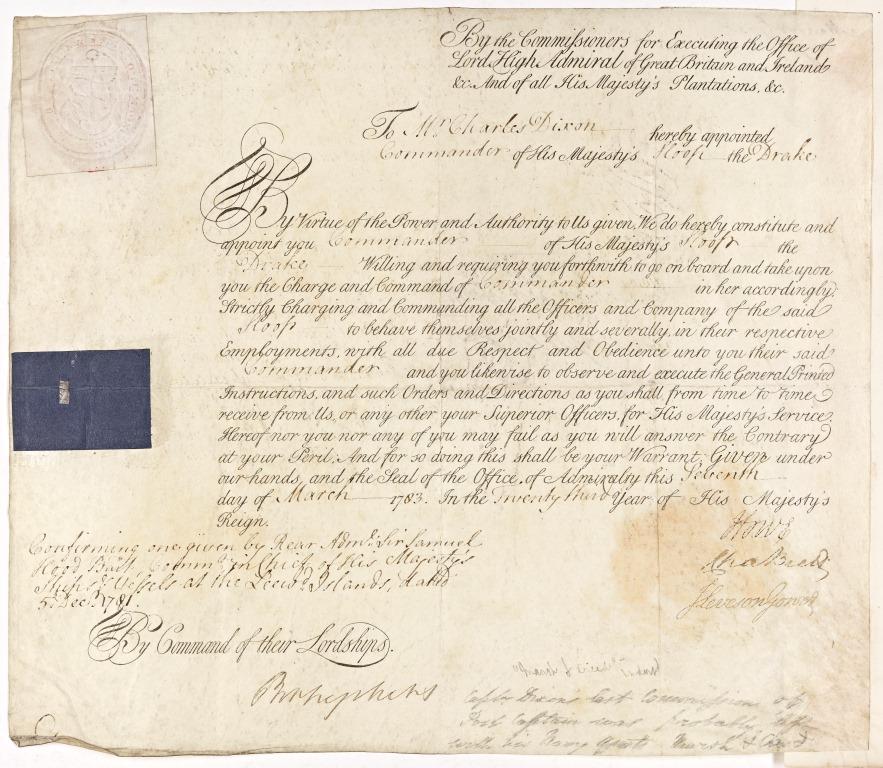 By the Commissioners for Executing the Office of
Lord High Admiral of Great Britain and Ireland
&c. And of all His Majesty's Plantations, &c.
To Mr. Charles Dixon hereby appointed
Commander of His Majesty's Sloop the Drake
By Virtue of the Power and Authority to Us given, We do hereby constitute and
appoint you Commander of His Majesty's Sloop the
Drake Willing and requiring you forthwith to go on board and take upon
you the Charge and Command of Commander in her accordingly;
Strictly Charging and Commanding all the Officers and Company of the said
Sloop to behave themselves jointly and severally, in their respective
Employments, with all due Respect and Obedience unto you their said
Commander and you likewise to observe and execute the General Printed
Instructions, and such Orders and Directions as you shall from time to time
receive from Us, or any other your Superior Officers, for His Majesty's Service.
Hereof nor you nor any of you may fail as you will answer the Contrary
at your Peril. And for so doing this shall be your Warrant. Given under
our hands, and the Seal of the Office of Admiralty this Seventh
day of March 1783. In the Twenty third Year of His Majesty's
Reign.
Howe
Cha Brett
J Leveson Gower
Confirming one given by Rear Adml. Sir Samuel
Hood Bart. Commr. in Chief of His Majesty's
Ships & Vessels at the Leewd. Islands, dated
5 Decr. 1781.
By Command of their Lordships.
Php Stephens
Captn Dixon's last Commission of
Post Captain was probably left
with his Navy Agents Marsh &